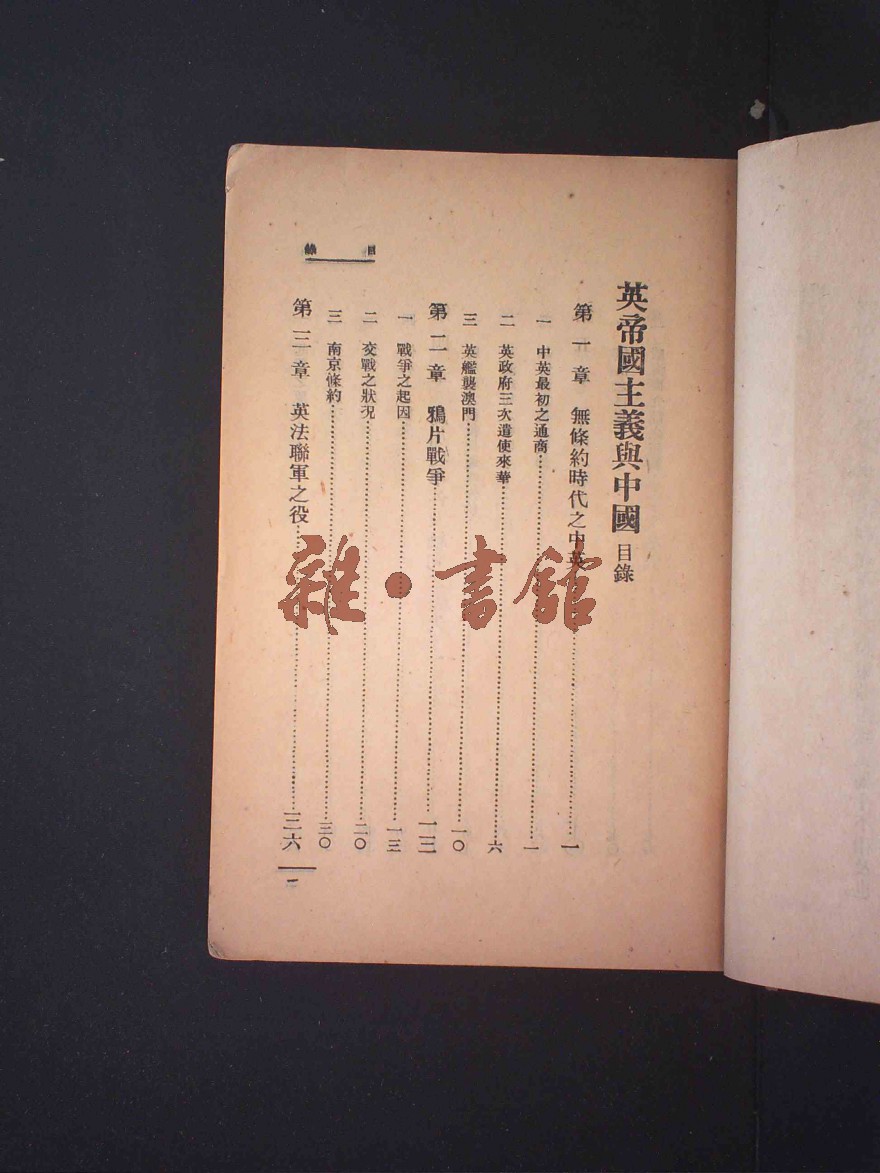 英帝國主義與中國 目錄
第一章 無條約時代之中英……一
一 中英最初之通商……一
二 英政府三次遣使來華……六
三 英艦襲澳門……一〇
第二章 鴉片戰爭……一三
一 戰爭之起因……一三
二 交戰之狀況……二〇
三 南京條約……三〇
第三章 英法聯軍之役……三六
目錄
一
雜·書館